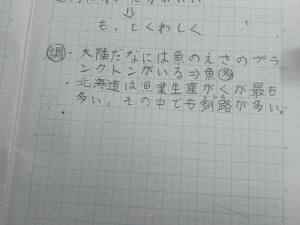 ⇓
もっとくわしく
・大陸だなには魚のえさのプラ
ンクトンがいる⇒魚多
・北海道は漁業生産がくが最も
多い。その中でも釧路が多い。